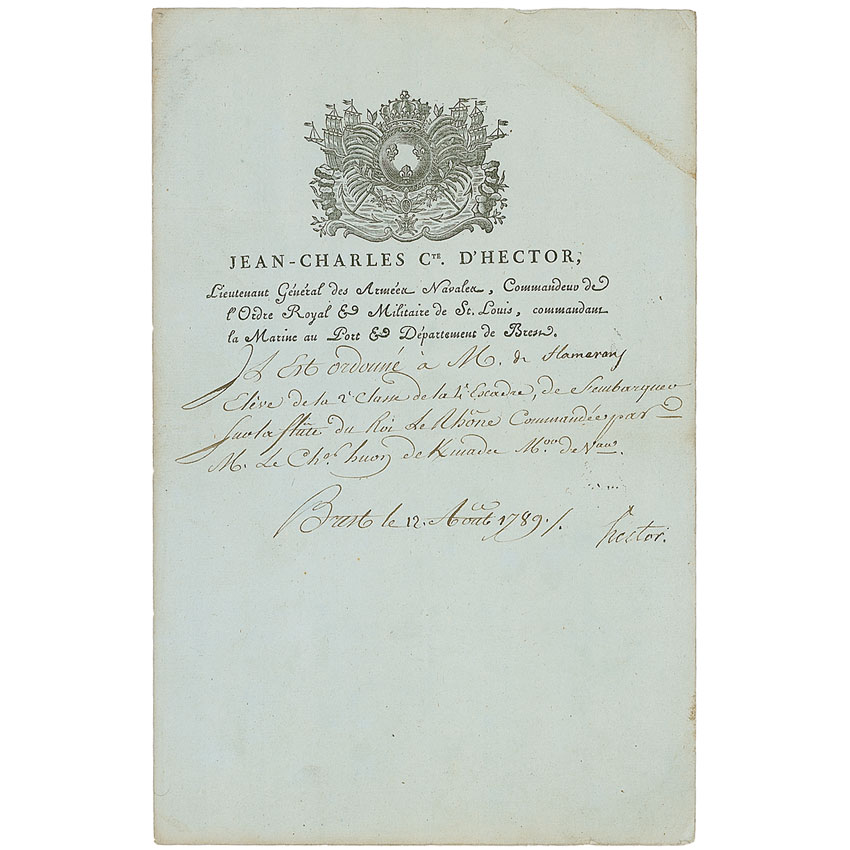 JEAN-CHARLES Cte. D'HECTOR,
Lieutenant Général des Armées Navales, Commandeur de
l'Ordre Royal & Militaire de St. Louis, commandant
la Marine au Port & Département de Brest.
Il Est ordonné à M. de
Elève de la 2e Classe de la 4e Escadre, de S'embarquer
Sur la flûte du Roi Le Rhône Commandée par
M. Le Cher. huon de Kmadec Mor. de Vau.
Brest le 12. Août 1789 ./.
hector.